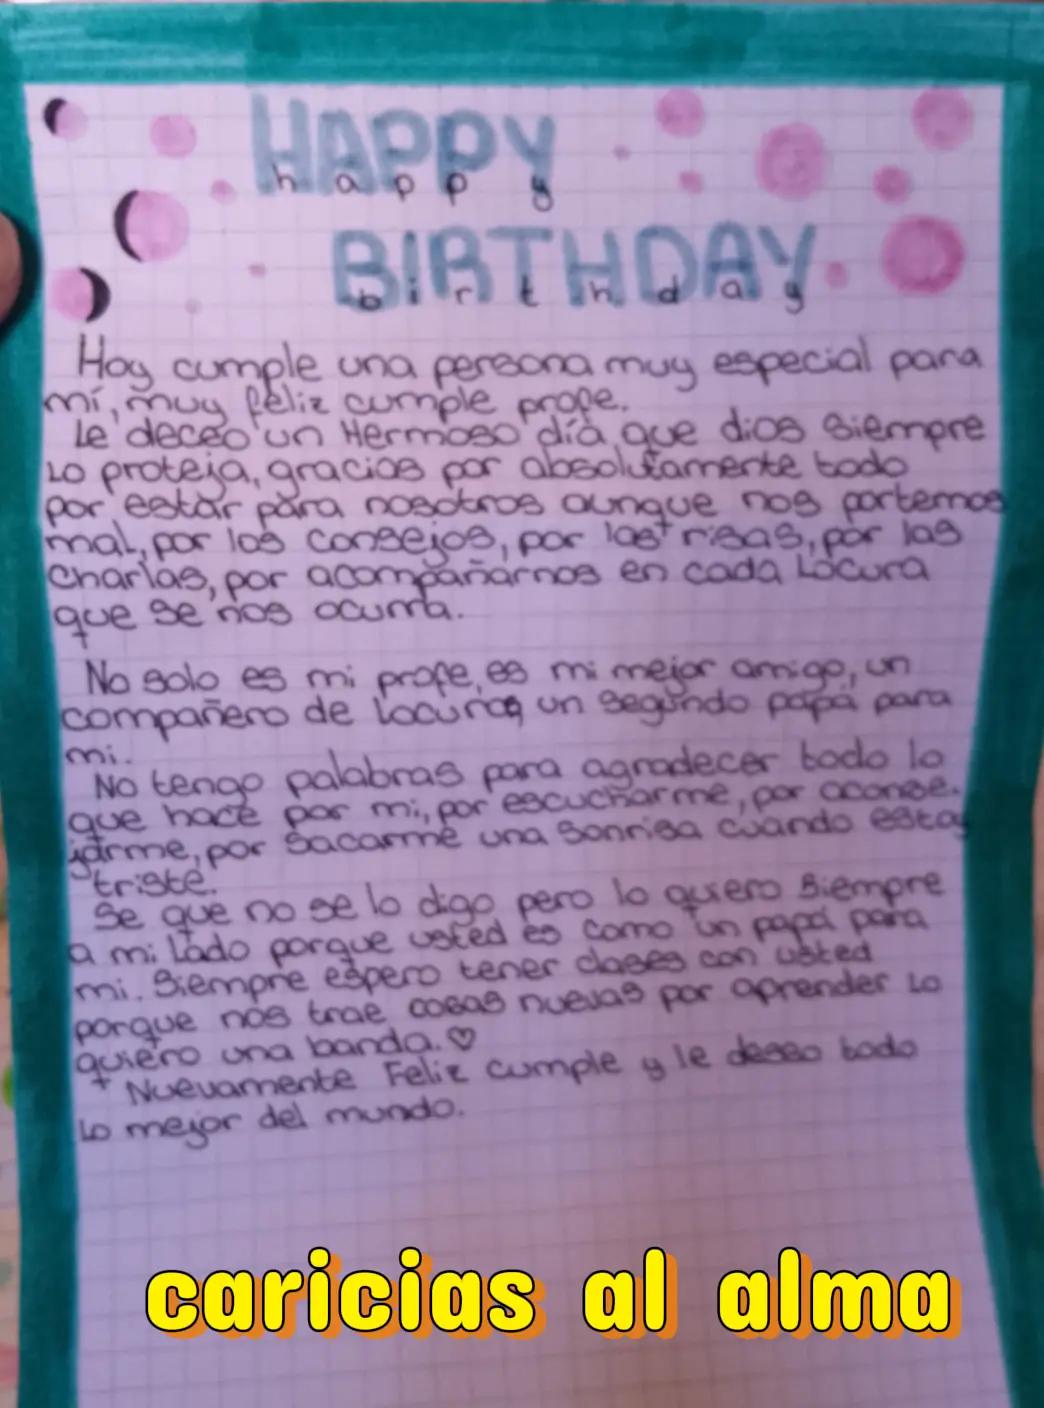 HAPPY
happy
BIRTHDAY
birthday
Hoy cumple una persona muy especial para
mí, muy feliz cumple profe.
Le deceo un Hermoso día, que dios siempre
Lo proteja, gracias por absolutamente todo
por estar para nosotros aunque nos portemos
mal, por los consejos, por las risas, por las
charlas, por acompañarnos en cada Locura
que se nos ocurra.
No solo es mi profe, es mi mejor amigo, un
compañero de Locuras un segundo papá para
mi.
No tengo palabras para agradecer todo lo
que hace por mi, por escucharme, por aconse-
jarme, por sacarme una sonrisa cuando estoy
triste.
Se que no se lo digo pero lo quiero siempre
a mi Lado porque usted es como un papá para
mi. Siempre espero tener clases con usted
porque nos trae cosas nuevas por aprender Lo
quiero una banda. ♡
Nuevamente Feliz cumple y le deseo todo
Lo mejor del mundo.
caricias al alma